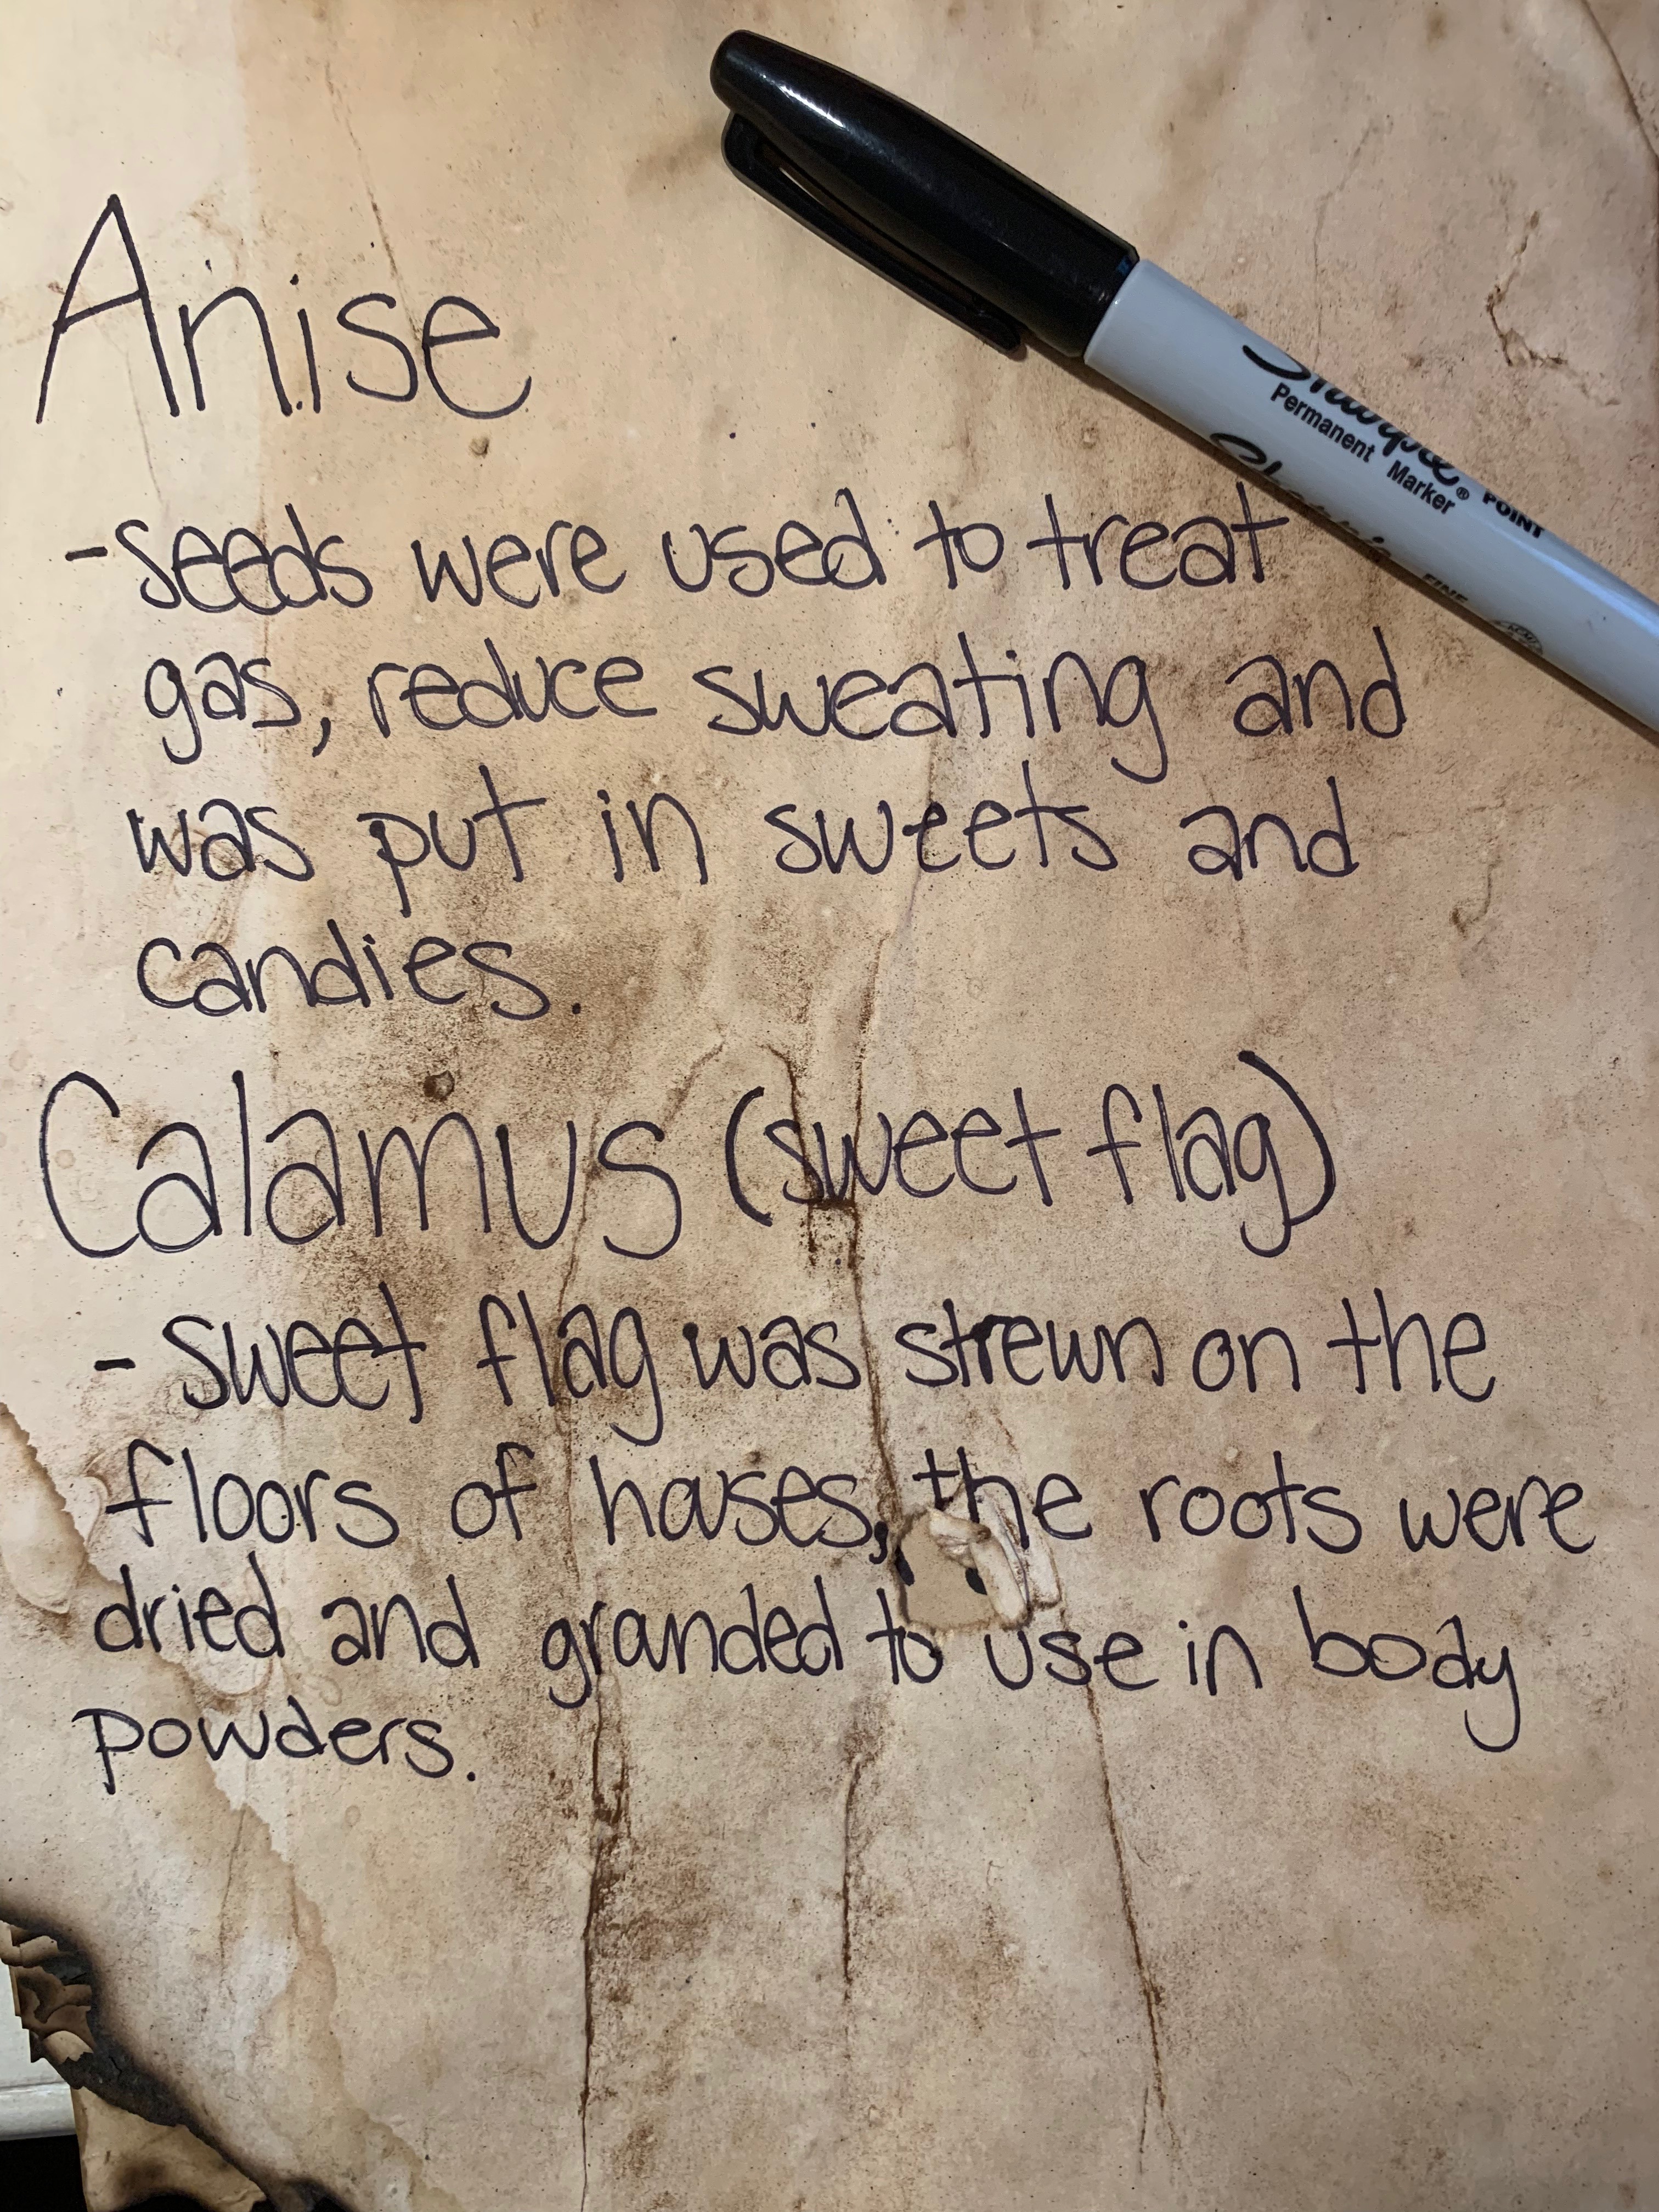 Anise
-seeds were used to treat
gas, reduce sweating and
was put in sweets and
candies.
Calamus (sweet flag)
- Sweet flag was strewn on the
floors of houses, the roots were
dried and grounded to use in body
powders.
Sharpie
Permanent Marker®
POINT
FINE